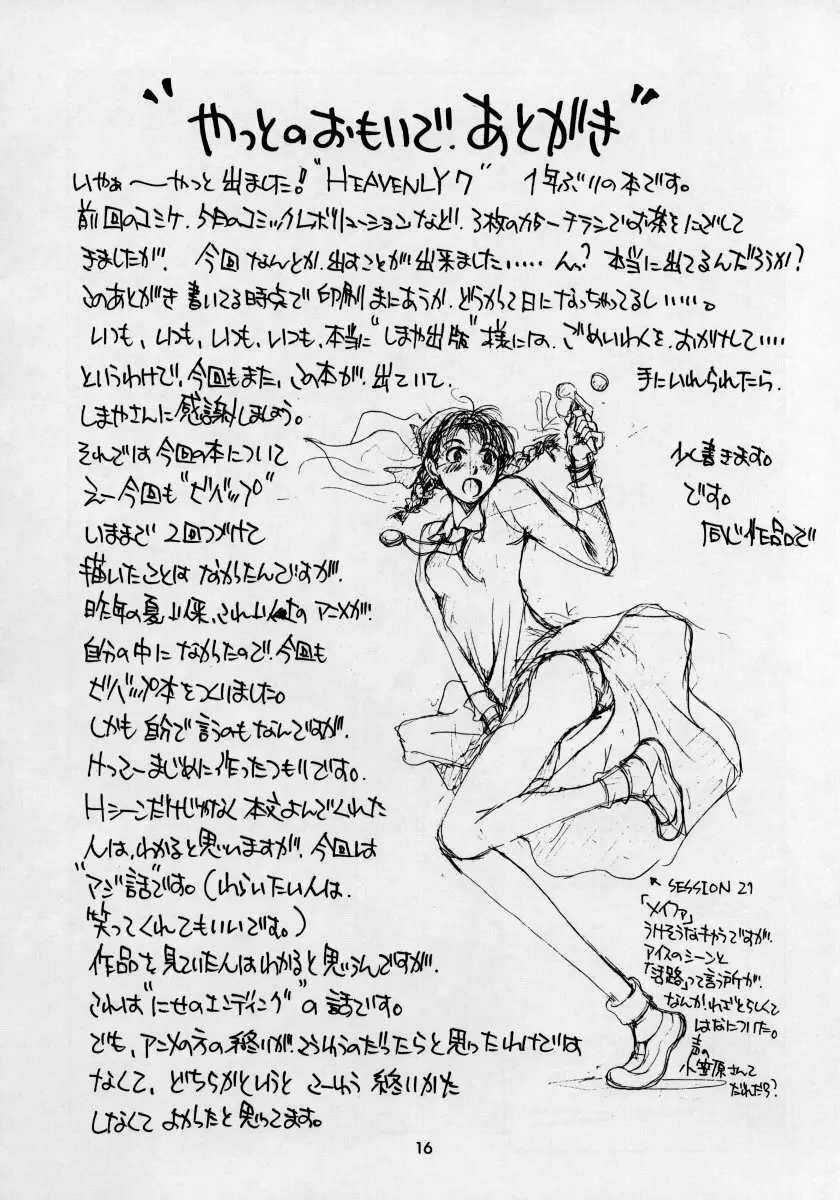 "やっとのおもいで!あとがき"
いやぁ〜やっと出ました!"HEAVENLY 7" 1年ぶりの本です。
前回のコミケ、5月のコミックレボリューションなど!3枚のカラーチラシでお茶をにごして
きましたが、今回なんとか、出すことが出来ました……ん?本当に出てるんだろうか?
このあとがき書いてる時点で印刷まにあうか、どうかって日になっちゃってるし……。
いつも、いつも、いつも、いつも、本当に"しまや出版"様には、ごめいわくを、おかけして……
というわけで、今回もまた、この本が、出ていて、手にいれられたら、
しまやさんに感謝しましょう。
それでは今回の本について
少く書きます。
えー今回も"ビバップ"
です。
いままで2回つづけて
同じ作品で
描いたことはなかったんですが、
昨年の夏以来、これといったのアニメが、
自分の中になかったので、今回も
ビバップ本をつくりました。
しかも自分で言うのもなんですが、
けっこーまじめに作ったつもりです。
Hシーンだけじゃなく本文よんでくれた
人は、わかると思いますが、今回は
"マジ話"です。(わらいたい人は、
笑ってくれてもいいです。)
作品を見ていた人はわかると思うんですが、
これは"にせのエンディング"の話です。
でも、アニメの方の終りが、こういうのだったらと思ったわけでは
なくて、どちらかというとこーゆう終いかた
しなくてよかったと思ってます。
↖SESSION 21
「メイファ」
うけそうなキャラですが、
アイスのシーンと
「活路」って言う所が、
なんかわざとらしくて
はなについた。
声の
小笠原さんて
だれだろ?
16